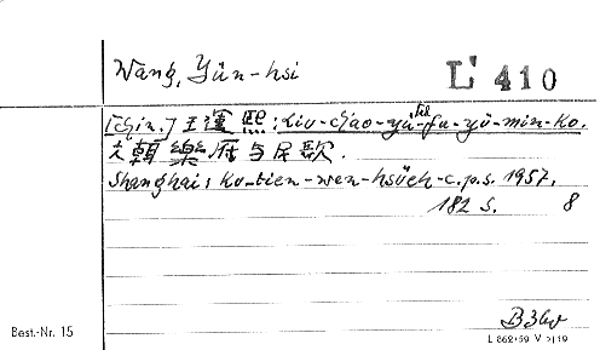 Wang, Yün-hsi
L' 410
[chin.] 王運熙: Liu-chao-yüeh-fu-yü-min-ko.
六朝樂府与民歌.
Shanghai: Ku-tien-wen-hsüeh-c.p.s. 1957.
182 S. 8
Best.-Nr. 15
L 862/59 V